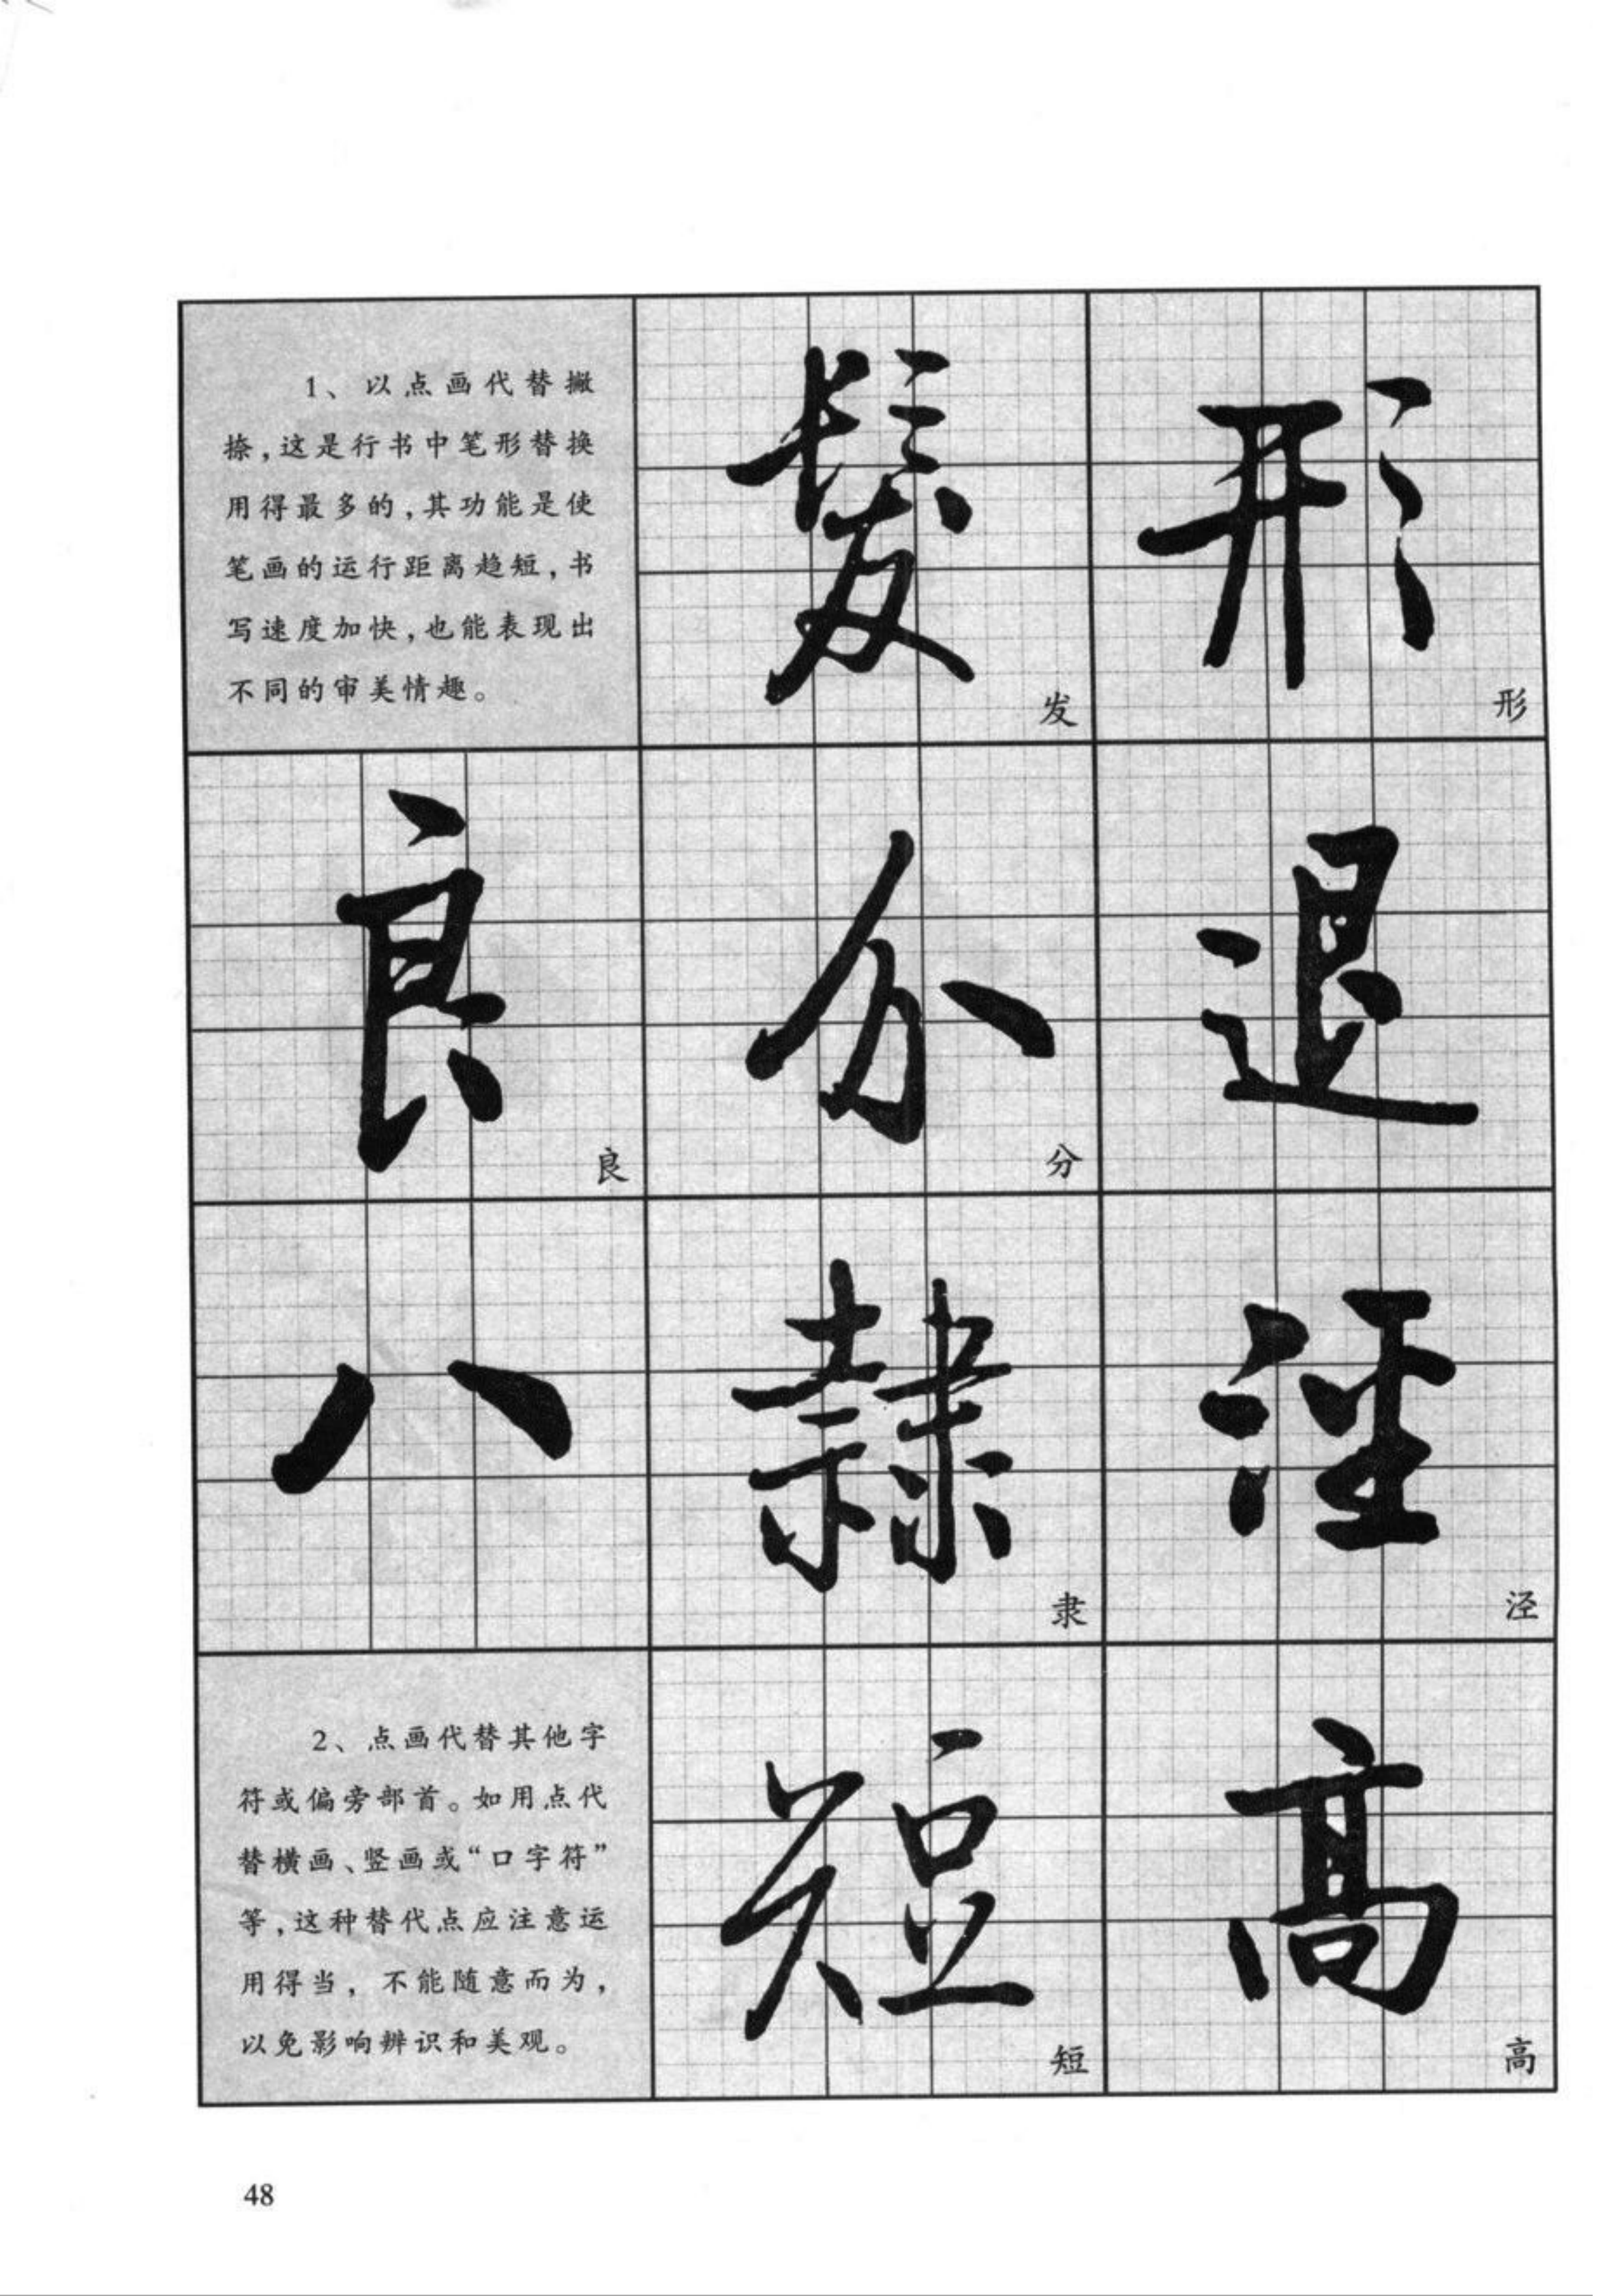 1、以点画代替撇
捺,这是行书中笔形替换
用得最多的,其功能是使
笔画的运行距离趋短,书
写速度加快,也能表现出
不同的审美情趣。
髮
发
形
形
良
良
分
分
退
八
隸
隶
泾
泾
2、点画代替其他字
符或偏旁部首。如用点代
替横画、竖画或“口字符”
等,这种替代点应注意运
用得当,不能随意而为,
以免影响辨识和美观。
短
短
高
高
48